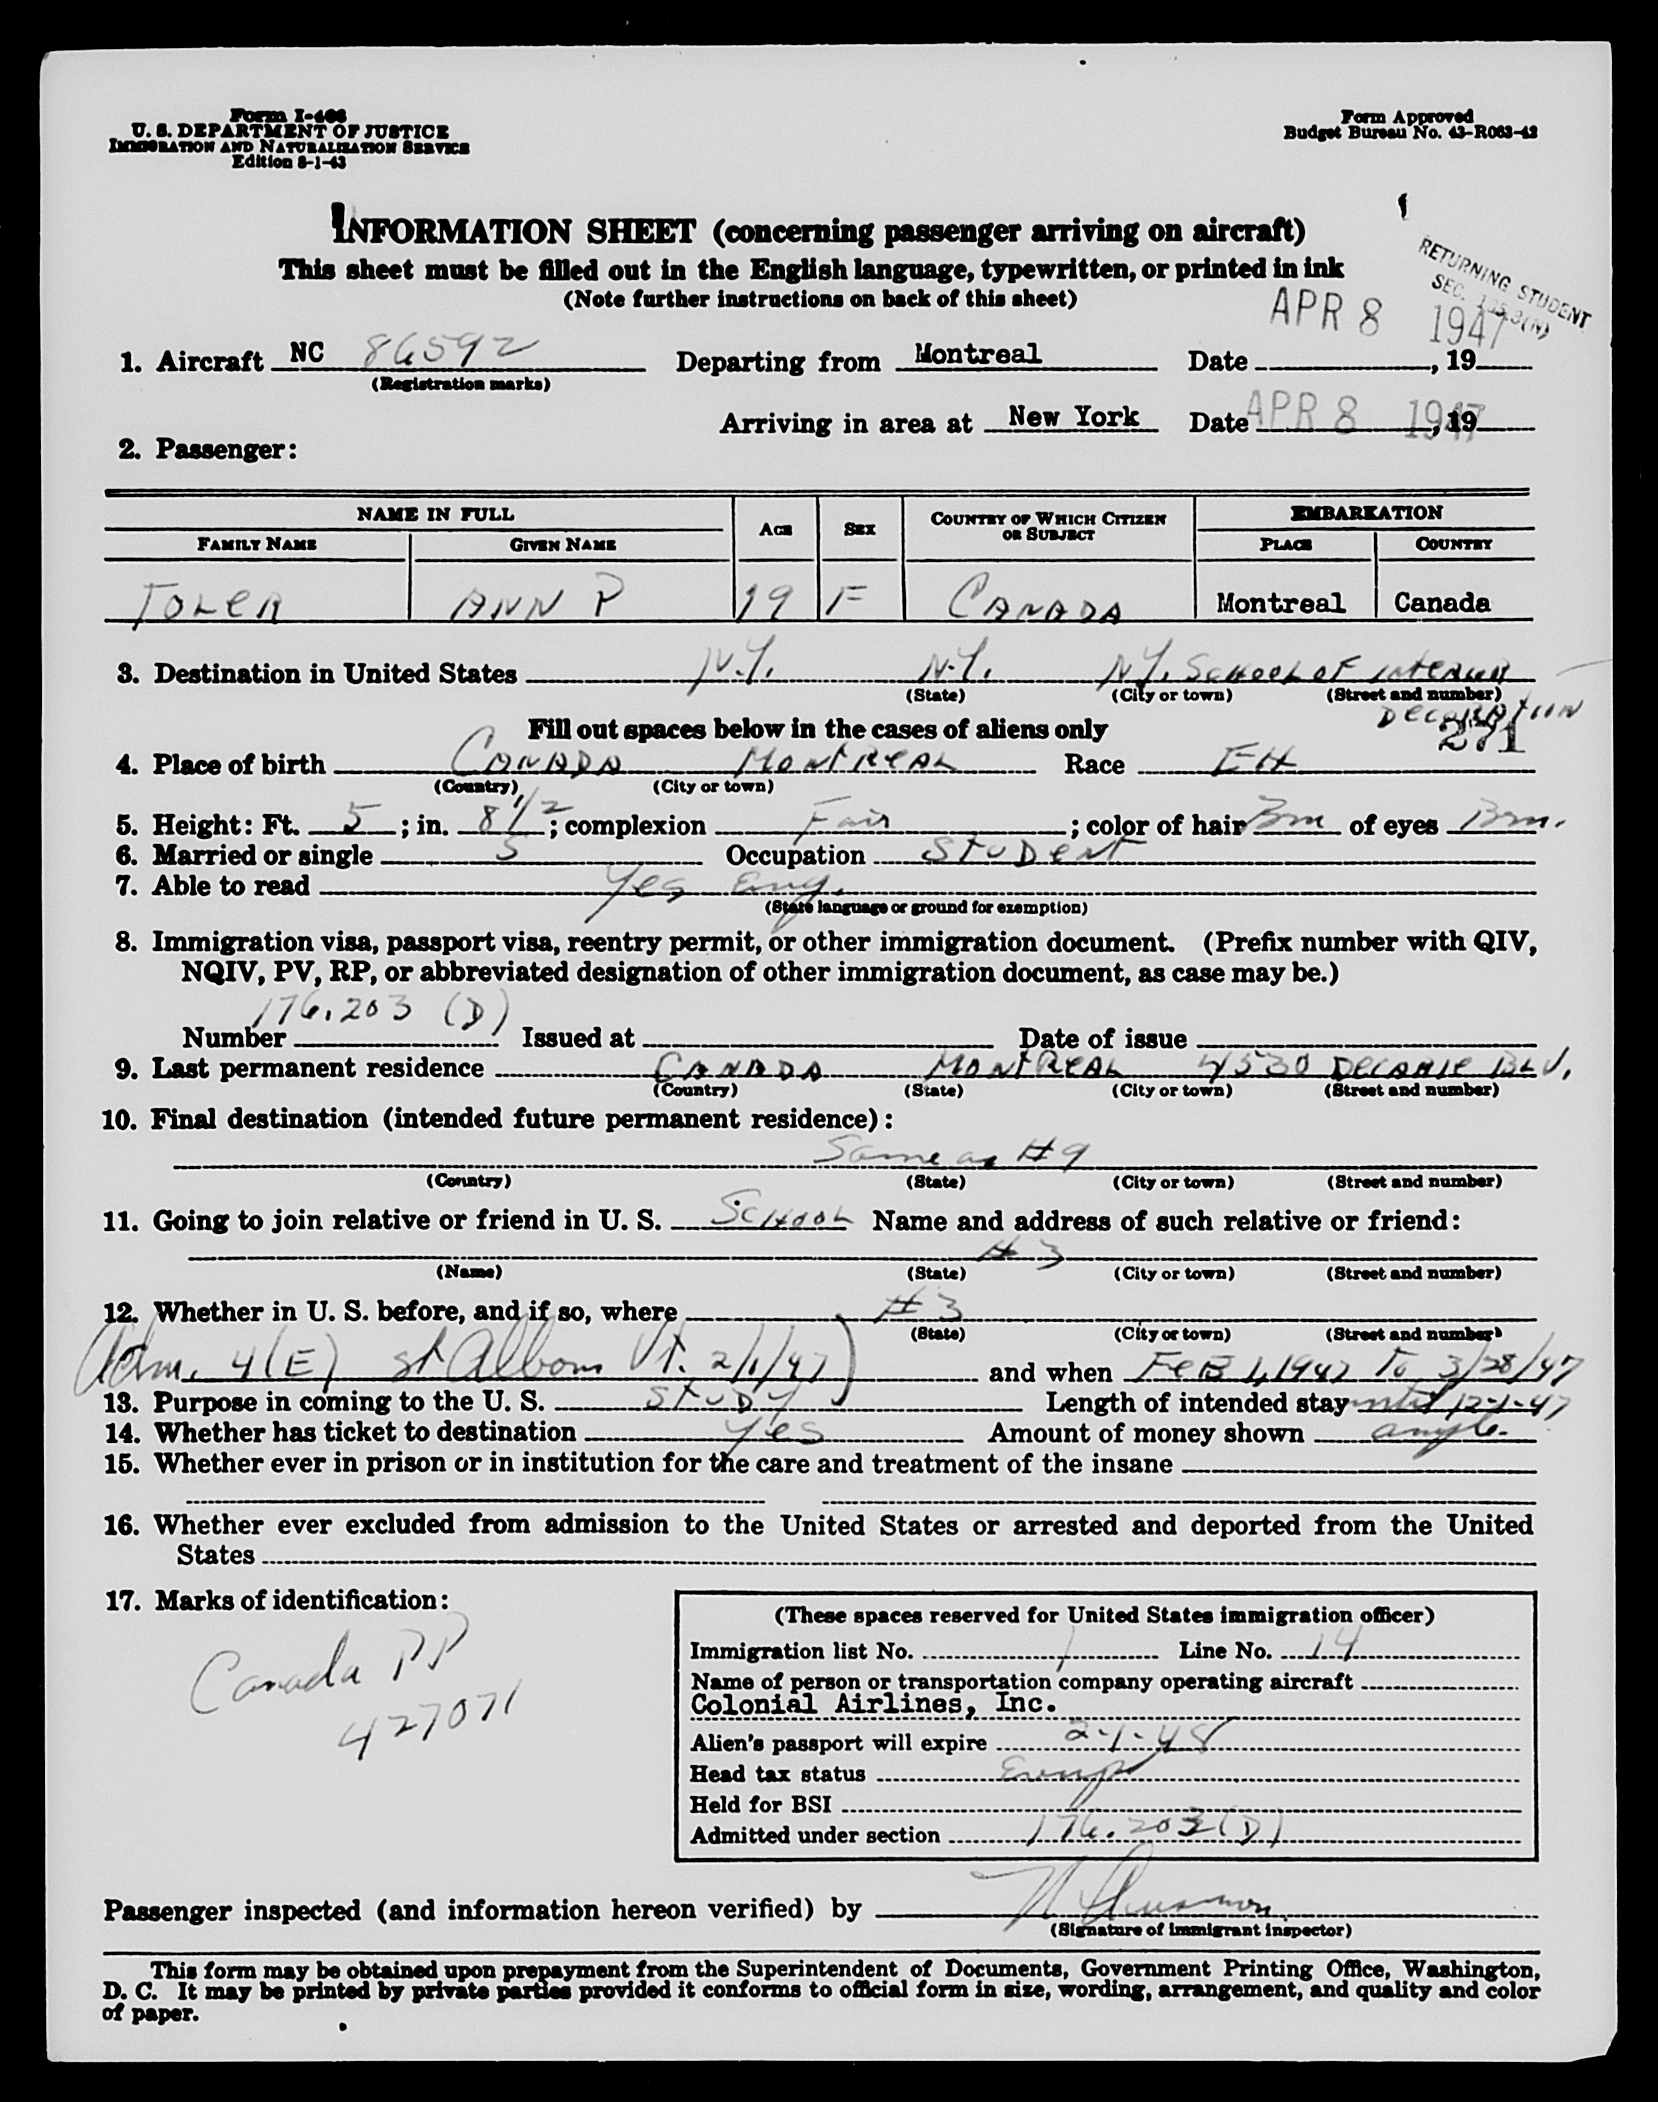 Form I-466
U. S. DEPARTMENT OF JUSTICE
IMMIGRATION AND NATURALIZATION SERVICE
Edition 8-1-43
Form Approved
Budget Bureau No. 43-R063-42
INFORMATION SHEET (concerning passenger arriving on aircraft)
This sheet must be filled out in the English language, typewritten, or printed in ink
(Note further instructions on back of this sheet)
RETURNING STUDENT
SEC.
APR 8 1947
1. Aircraft NC 86592 Departing from Montreal Date , 19
(Registration marks)
Arriving in area at New York Date APR 8 1947, 19
2. Passenger:
NAME IN FULL
FAMILY NAME GIVEN NAME
AGE SEX
COUNTRY OF WHICH CITIZEN OR SUBJECT
EMBARKATION
PLACE COUNTRY
TOLER ANN P 19 F CANADA Montreal Canada
3. Destination in United States N.Y. N.Y. N.Y. SCHOOL OF INTERIOR
(State) (City or town) (Street and number)
DECORATION
271
Fill out spaces below in the cases of aliens only
4. Place of birth CANADA MONTREAL Race EH
(Country) (City or town)
5. Height: Ft. 5; in. 8 1/2; complexion Fair; color of hair Brn of eyes Brn.
6. Married or single S Occupation STUDENT
7. Able to read Yes Eng.
(State language or ground for exemption)
8. Immigration visa, passport visa, reentry permit, or other immigration document. (Prefix number with QIV,
NQIV, PV, RP, or abbreviated designation of other immigration document, as case may be.)
176.203 (D)
Number Issued at Date of issue
9. Last permanent residence CANADA MONTREAL 4530 DECARIE BLV.
(Country) (State) (City or town) (Street and number)
10. Final destination (intended future permanent residence):
Same as #9
(Country) (State) (City or town) (Street and number)
11. Going to join relative or friend in U. S. SCHOOL Name and address of such relative or friend:
#3
(Name) (State) (City or town) (Street and number)
12. Whether in U. S. before, and if so, where #3
(State) (City or town) (Street and number)
Adm. 4(E) St Albans Vt. 2/1/47) and when FEB 1, 1947 TO 3/28/47
13. Purpose in coming to the U. S. STUDY Length of intended stay until 12-1-47
14. Whether has ticket to destination Yes Amount of money shown ample.
15. Whether ever in prison or in institution for the care and treatment of the insane
16. Whether ever excluded from admission to the United States or arrested and deported from the United
States
17. Marks of identification:
Canada PP
427071
(These spaces reserved for United States immigration officer)
Immigration list No. 1 Line No. 14
Name of person or transportation company operating aircraft
Colonial Airlines, Inc.
Alien's passport will expire 2-1-48
Head tax status Exempt
Held for BSI
Admitted under section 176.203(D)
Passenger inspected (and information hereon verified) by
(Signature of immigrant inspector)
This form may be obtained upon prepayment from the Superintendent of Documents, Government Printing Office, Washington,
D. C. It may be printed by private parties provided it conforms to official form in size, wording, arrangement, and quality and color
of paper.